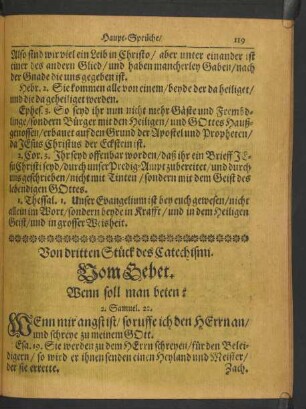 Haupt-Sprüche/ 119
Also sind wir viel ein Leib in Christo/ aber unter einander ist
einer des andern Glied/ und haben mancherley Gaben/nach
der Gnade die uns gegeben ist.
Hebr. 2. Sie kommen alle von einem/beyde der da heiliget/
und die da geheiliget werden.
Ephes. 2. So seyd ihr nun nicht mehr Gäste und Frembd-
linge/sondern Bürger mit den Heiligen/ und GOttes Hauß-
genossen/erbauet auf den Grund der Apostel und Propheten/
da JEsus Christus der Eckstein ist.
2. Cor. 3. Ihr seyd offenbar worden/daß ihr ein Brieff JE-
su Christi seyd/durch unser Predig-Ampt zubereitet/und durch
uns geschrieben/nicht mit Tinten/sondern mit dem Geist des
lebendigen GOttes.
1. Thessal. 1. Unser Evangelium ist bey euch gewesen/nicht
allein im Wort/sondern beyde in Krafft/ und in dem Heiligen
Geist/und in grosser Weisheit.
Von dritten Stück des Catechismi.
Vom Gebet.
Wenn soll man beten?
2. Samuel. 22.
WEnn mir angst ist/ so ruffe ich den HErrn an/
und schreye zu meinem GOtt.
Esa. 19. Sie werden zu dem HErrn schreyen/für den Belei-
digern/ so wird er ihnen senden einen Heyland und Meister/
der sie errette. Zach.